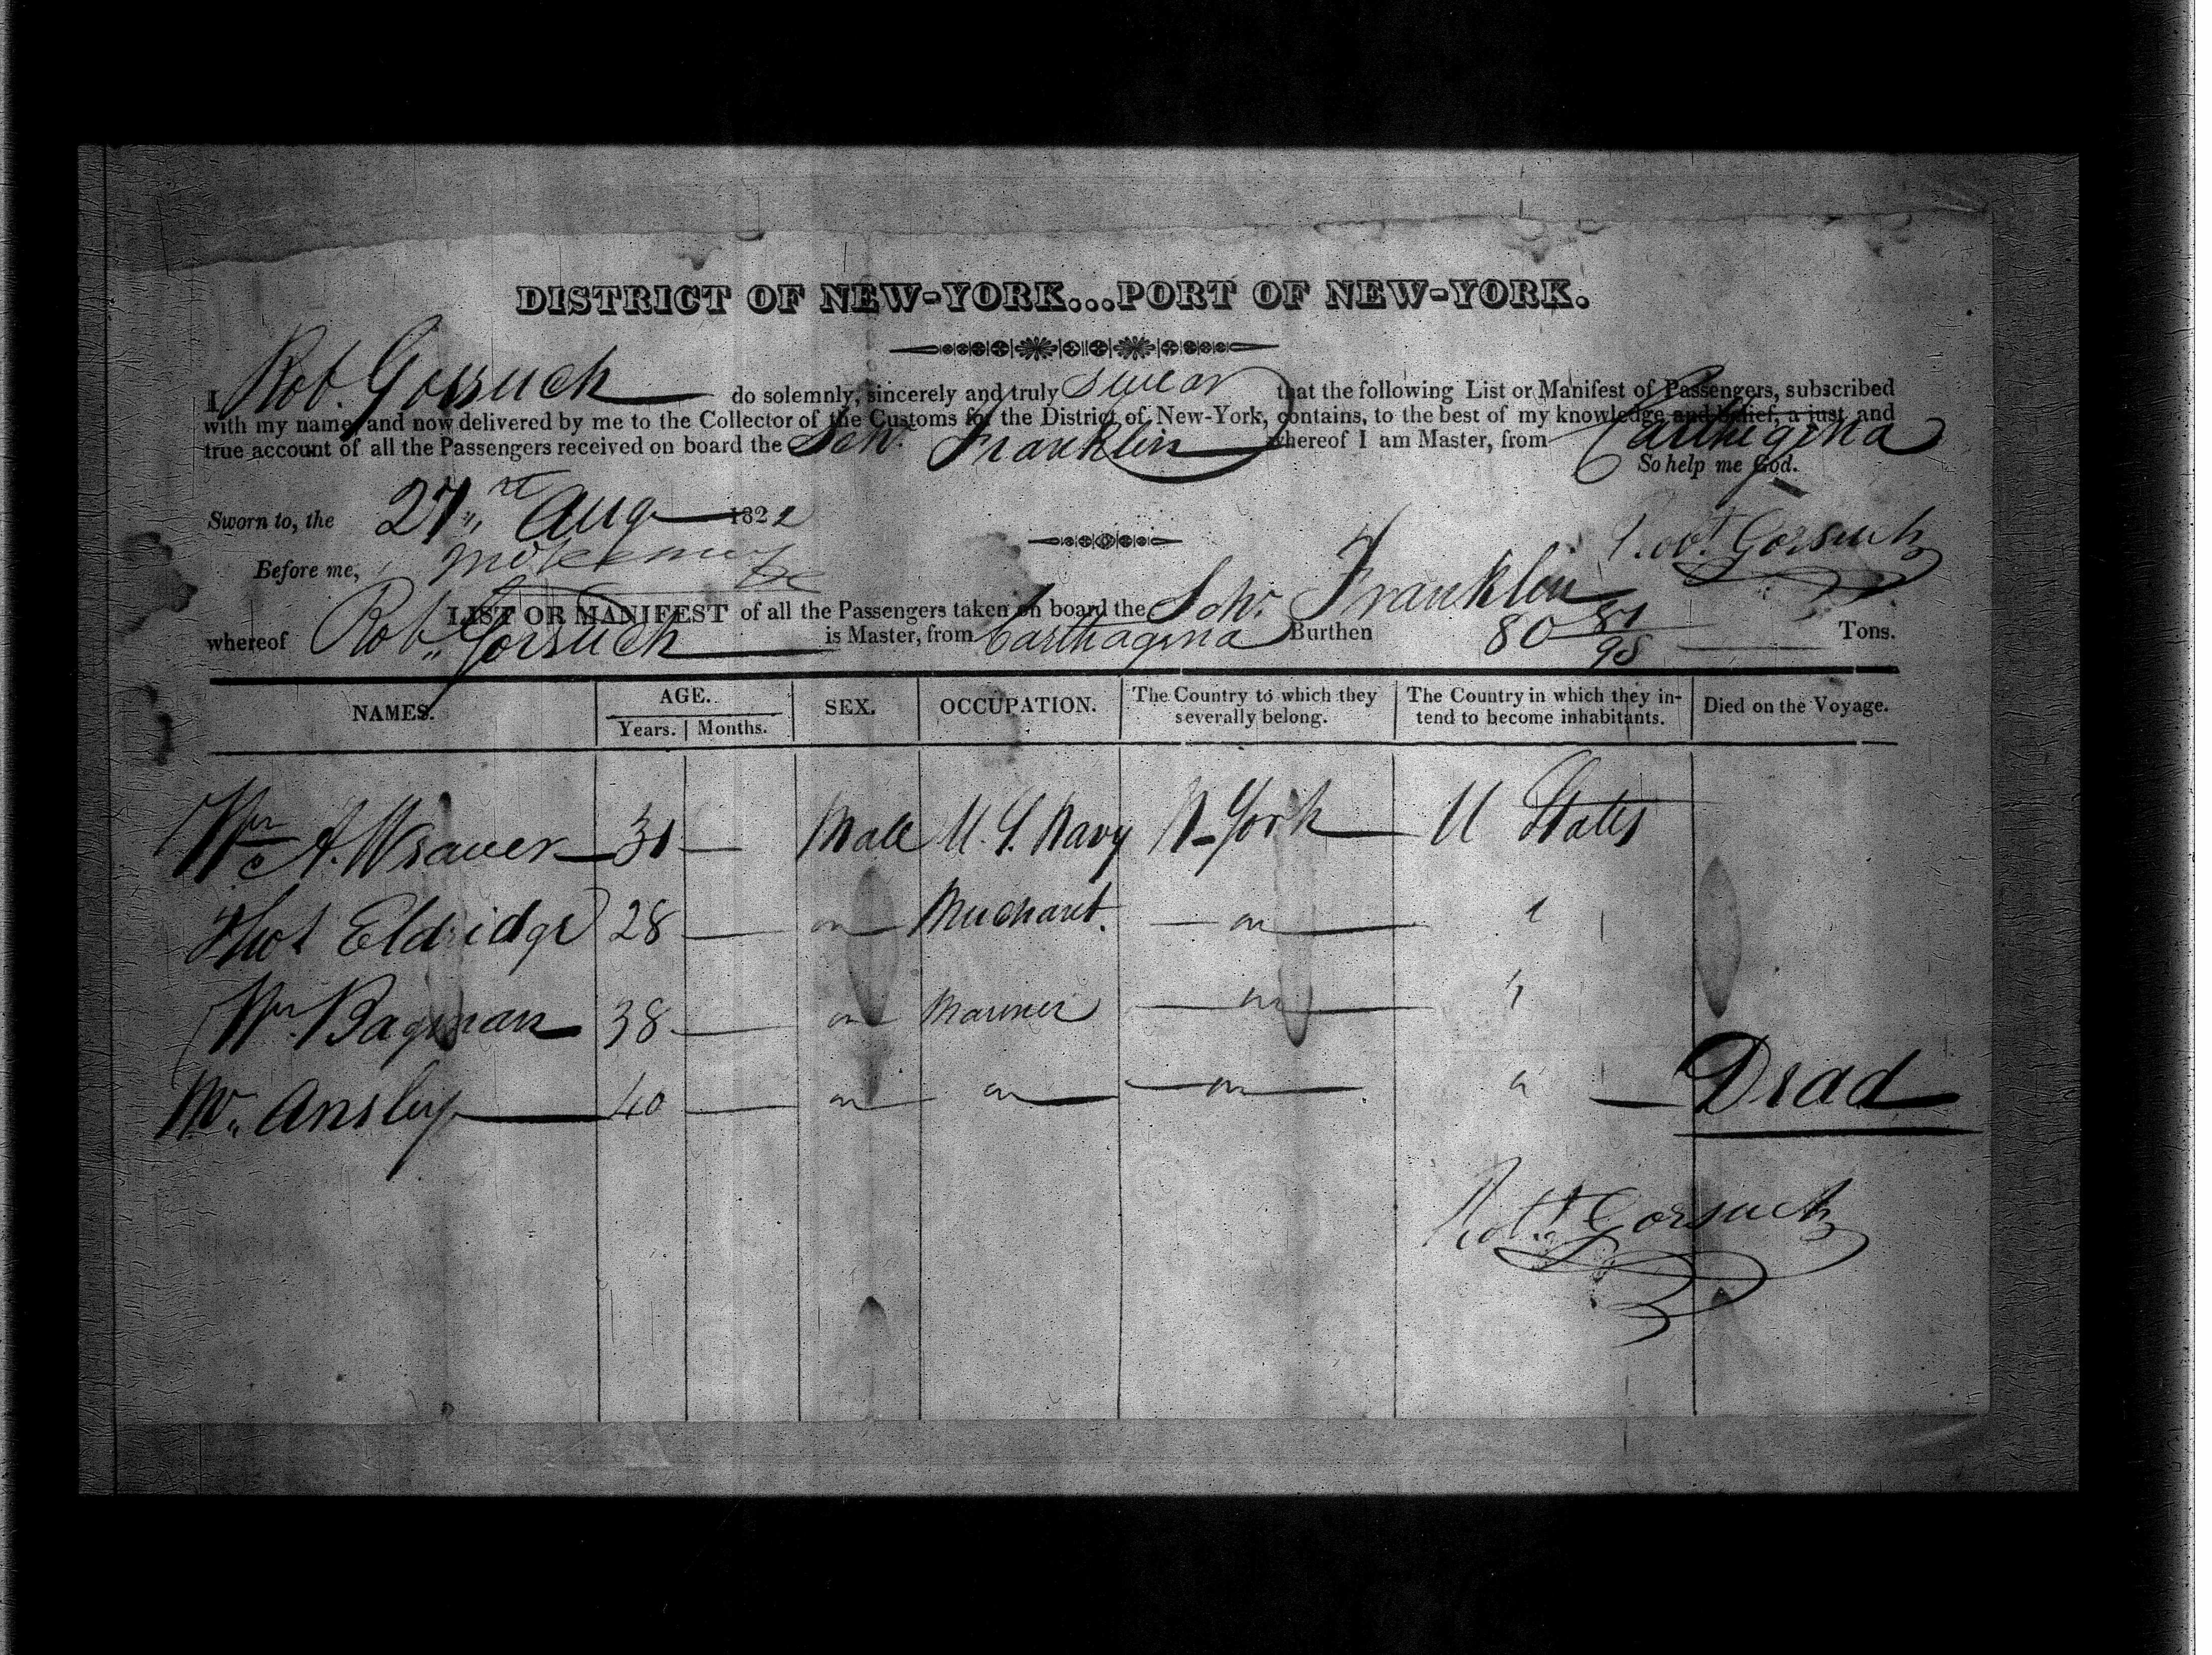 DISTRICT OF NEW-YORK...PORT OF NEW-YORK.
I Rob. Gorsuch do solemnly, sincerely and truly swear that the following List or Manifest of Passengers, subscribed
with my name, and now delivered by me to the Collector of the Customs for the District of New-York, contains, to the best of my knowledge and belief, a just and
true account of all the Passengers received on board the Schr. Franklin whereof I am Master, from Carthegina
So help me God.
Sworn to, the Aug 1822
Robt. Gorsuch
Before me,
LIST OR MANIFEST of all the Passengers taken on board the Schr. Franklin
whereof Rob. Gorsuch is Master, from Carthagina Burthen 80 81/95 Tons.
NAMES. AGE. SEX. OCCUPATION. The Country to which they severally belong. The Country in which they intend to become inhabitants. Died on the Voyage.
Years. Months.
Wm A. Weaver 31 — Male U.S. Navy N-York U States
Thos Eldridge 28 — Merchant. "
Wm. Bagman 38 — Mariner "
Mr. Ansley 40 — " Dead
Robt. Gorsuch